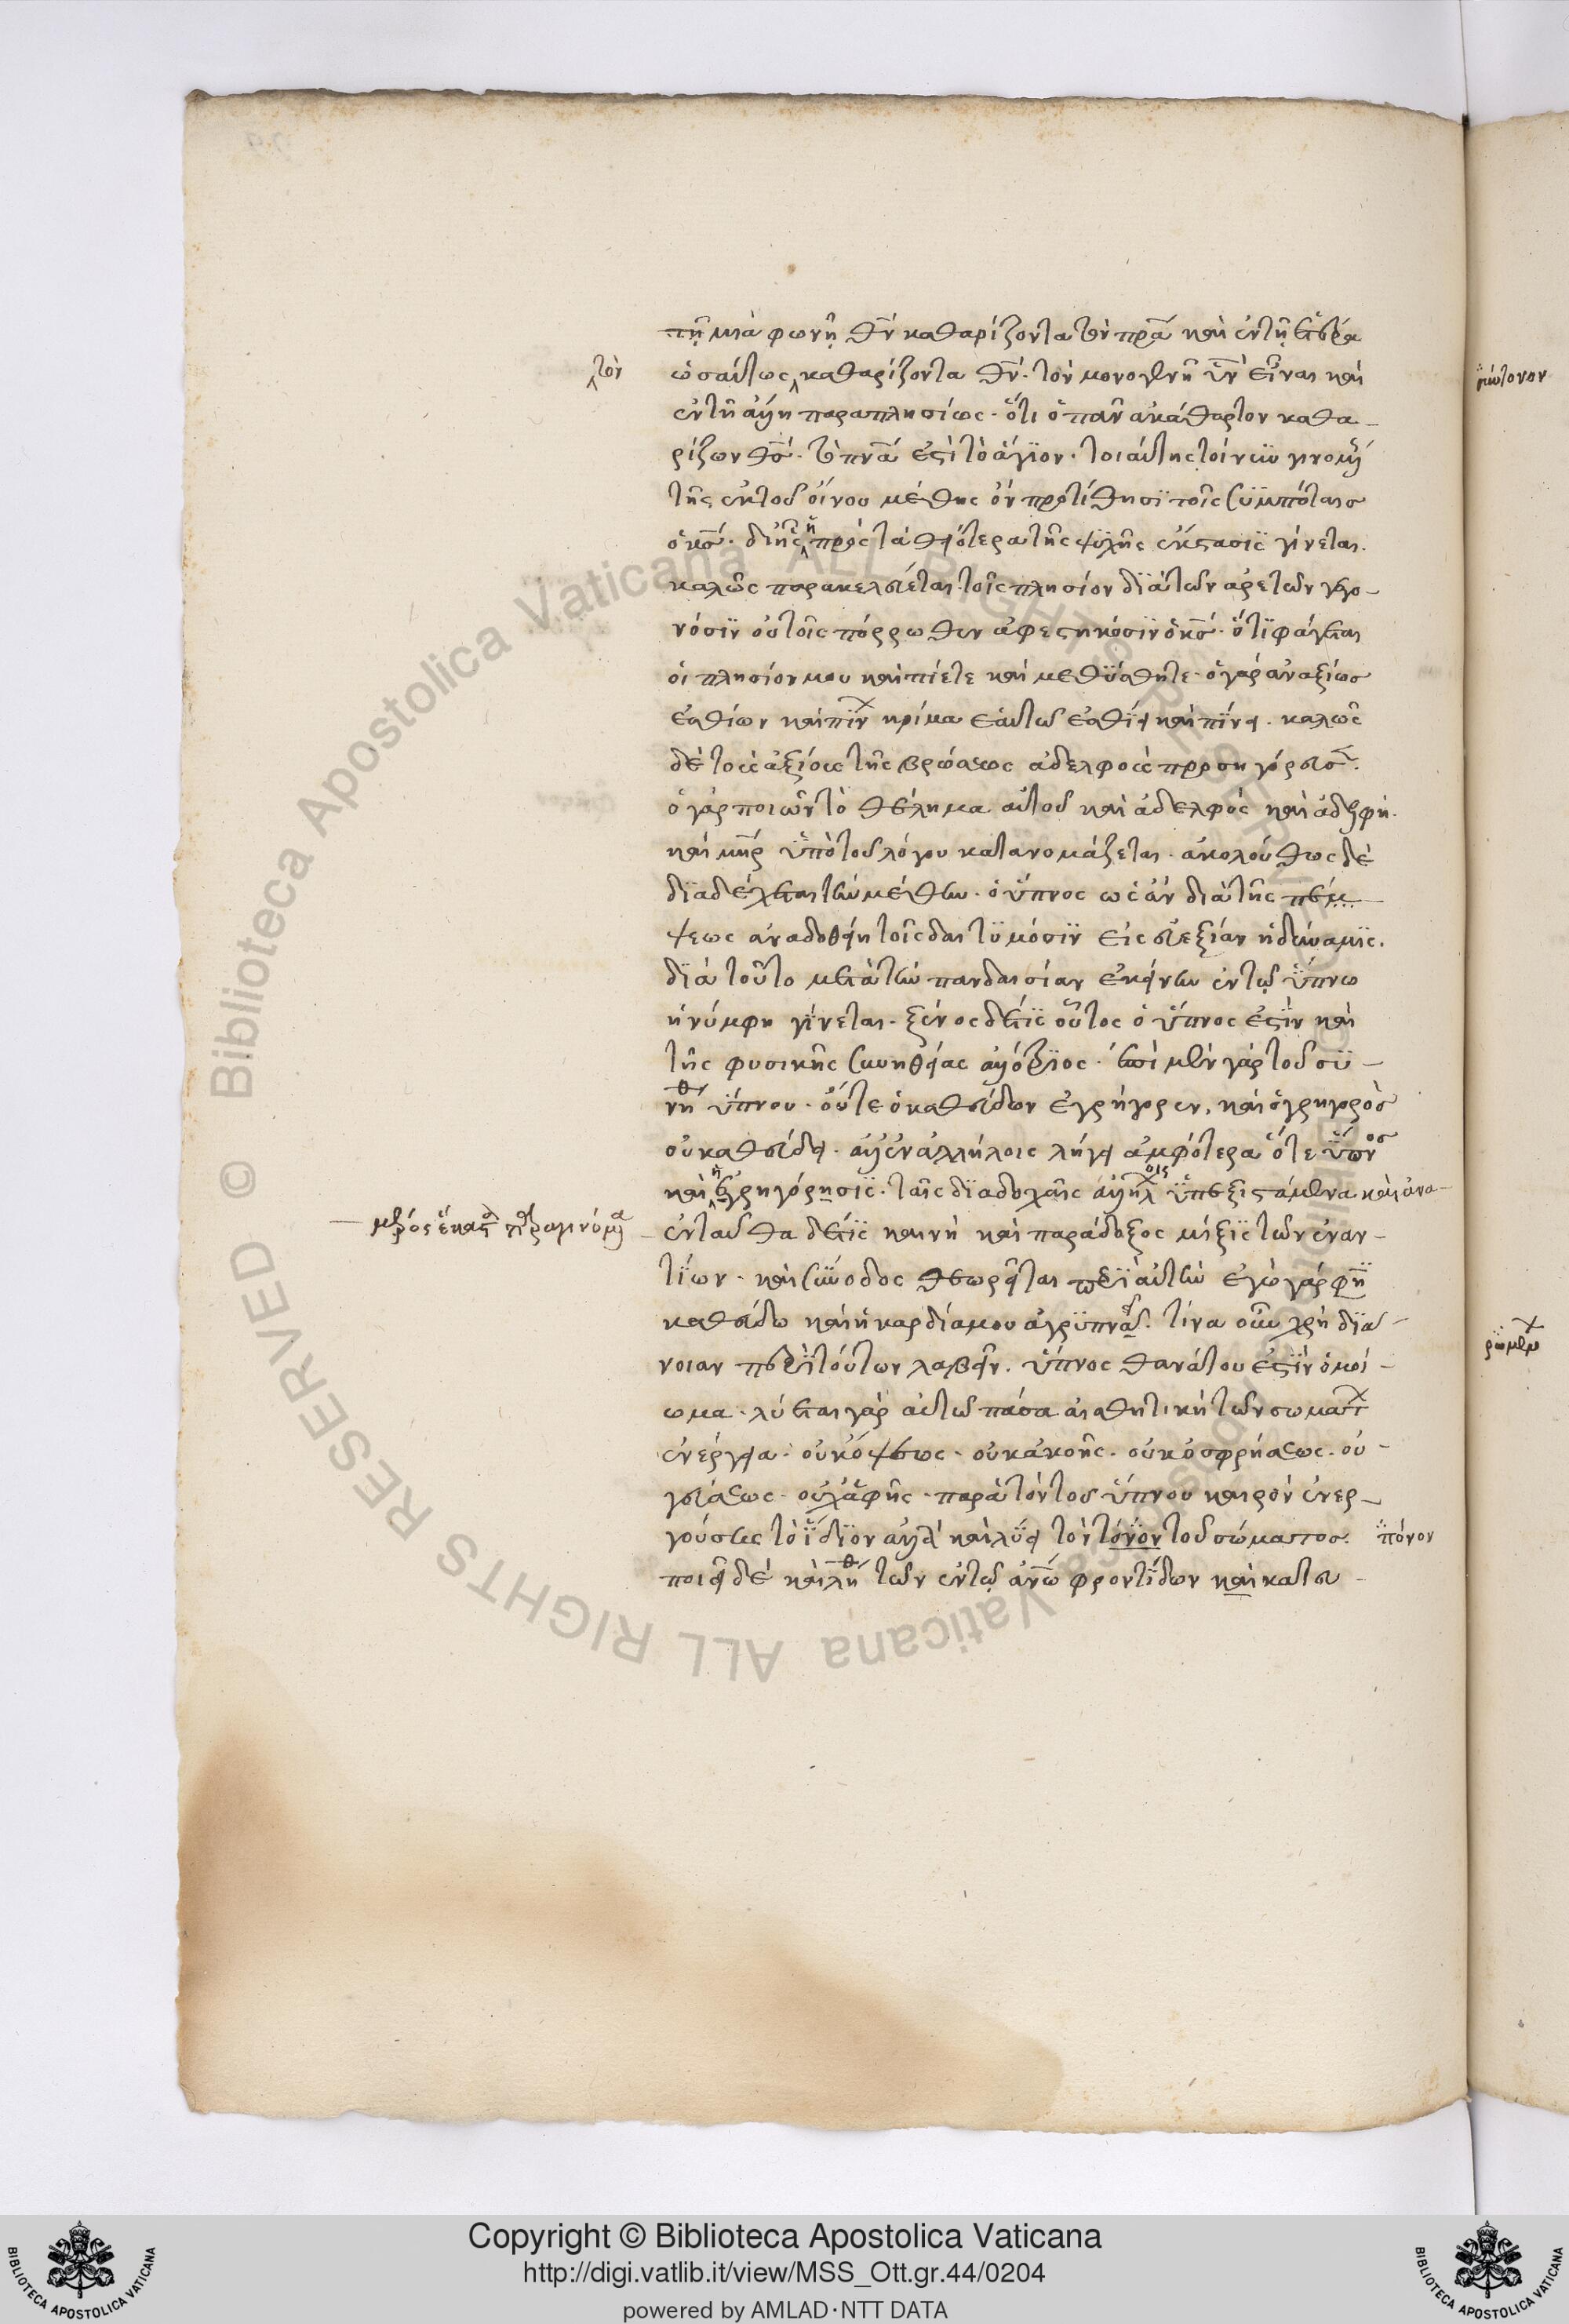 τῇ μιᾷ φωνῇ θν καθαρίζοντα τὸν πρα καὶ ἐν τῇ ἑτέρα
τὸν
ὡσαύτως καθαρίζοντα θν. τὸν μονογενῆ υν εἶναι καὶ
ἐν τῆ ἄλλη παραπλησίως. ὅτι ὁ πᾶν ἀκάθαρτον καθα-
ρίζων θς. τὸ πνα ἐστὶ τὸ ἅγϊον. τοιαύτης τοίνυν γινομένης
τῆς ἐκ τοῦ οἴνου μέθης ὃν προτίθησϊ τοῖς συμπόταις
ὁ κς. δι' ἧς ἡ πρὸς τὰ θειότερα τῆς ψϋχῆς ἔκστασϊς γίνεται.
καλῶς παρακελεύεται τοῖς πλησίον δϊὰ τῶν ἀρετῶν γεγο-
νόσϊν οὐ τοῖς πόρρωθεν ἀφεστηκόσϊν ὁ κς. ὅτϊ φάγεται
οἱ πλησίον μου καὶ πίετε καὶ μεθϋσθητε. ὁ γὰρ ἀναξίως
ἐσθίων καὶ πίν κρίμα ἑαυτῶ ἐσθίει καὶ πίνει. καλῶς
δὲ τοὺς ἀξίους τῆς βρώσεως ἀδελφοὺς προσηγόρευσε.
ὁ γὰρ ποιῶν τὸ θέλημα αὐτοῦ καὶ ἀδελφὸς καὶ ἀδελφὴ.
καὶ μηρ ὑπὸ τοῦ λόγου κατανομάζεται. ἀκολούθως δὲ
δϊαδέχεται τὴν μέθην. ὁ ὕπνος ὡς ἂν διὰ τῆς πέμ-
ψεως ἀναδοθείη τοῖς δαιτϋμόσϊν εἰς εὐεξίαν ἡ δύναμϊς.
δϊὰ τοῦτο μετὰ τὴν πανδαισίαν ἐκείνην ἐν τῶ ὕπνω
ἡ νύμφη γίνεται. ξένος δέ τϊς οὗτος ὁ ὕπνος ἐστὶν καὶ
τῆς φυσικῆς συνηθείας ἀλλότρϊος. ἐπὶ μὲν γὰρ τοῦ σϋ-
νήθ ὕπνου. οὔτε ὁ καθεύδων ἐγρήγορεν, καὶ ὁ ἐγρηγορὼς
οὐ καθεύδει. ἀλλ' ἐν ἀλλήλοις λήγει ἀμφότερα ὅ τε ὕπνος
καὶ ἡ ἐγρηγόρησϊς. ταῖς δϊαδοχαῖς ἀλλήλοις ὑπεξιστάμενα καὶ ἀνα-
μέρος ἑκάστ παραγινόμενα
ἐνταῦθα δέ τϊς καινὴ καὶ παράδοξος μίξϊς τῶν ἐναν-
τίων. καὶ σύνοδος θεωρεῖται περὶ αὐτὴν ἐγὼ γὰρ φη
καθεύδω καὶ ἡ καρδία μου ἀγρϋπνεῖ. τίνα οὖν χρὴ δϊά-
νοιαν περὶ τούτων λαβεῖν. ὕπνος θανάτου ἐστὶν ὁμοί-
ωμα. λύεται γὰρ αὐτῶ πάσα αἰσθητικὴ τῶν σωμάτ
ἐνέργεια. οὐκ ὄψεως. οὐκ ἀκοῆς. οὐκ ὀσφρήσεως. οὐ
γεύσεως. οὐχ ἁφῆς. παρὰ τὸν τοῦ ὕπνου καιρὸν ἐνερ-
γούσης τὸ ἴδϊον ἀλλὰ καὶ λύει τὸν τόνον τοῦ σώματος. πόνον
ποιεῖ δὲ καὶ λήθ τῶν ἐν τῶ ἀνω φροντίδων καὶ κατευ-